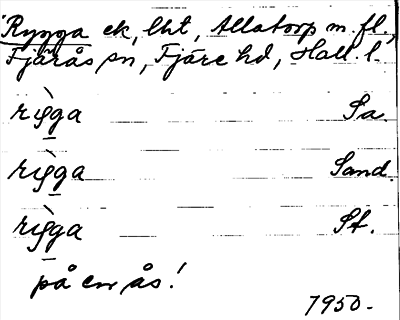 Rygga ek, lht, Allatorp m. fl.,
Fjärås sn, Fjäre hd, Hall. l.
rìgga Sa.
rìgga Sand.
rìgga St.
på en ås!
1950.